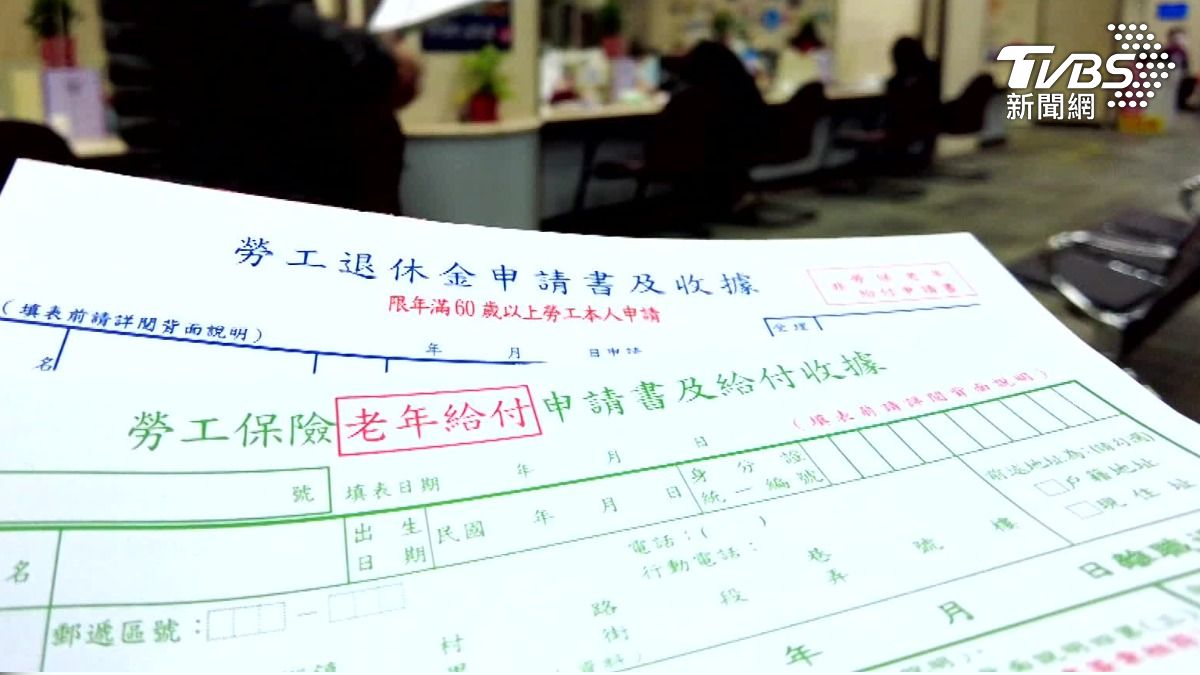 TVBS
新聞網
勞工退休金申請書及收據
非勞保老年
給付申請書
限年滿60歲以上勞工本人申請
(填表前請詳閱背面說明)
受理
年 月 日申請
名
勞工保險老年給付申請書及給付收據
(填表前請詳閱背面說明)
號
填表日期 年 月 日
名
出生
日期
民國 年 月 日
身分證
統一編號
戶籍地址
現住址
電話:( )
行動電話:
郵遞區號: —
村
路
街
段
巷
弄
號
樓
年 月 日